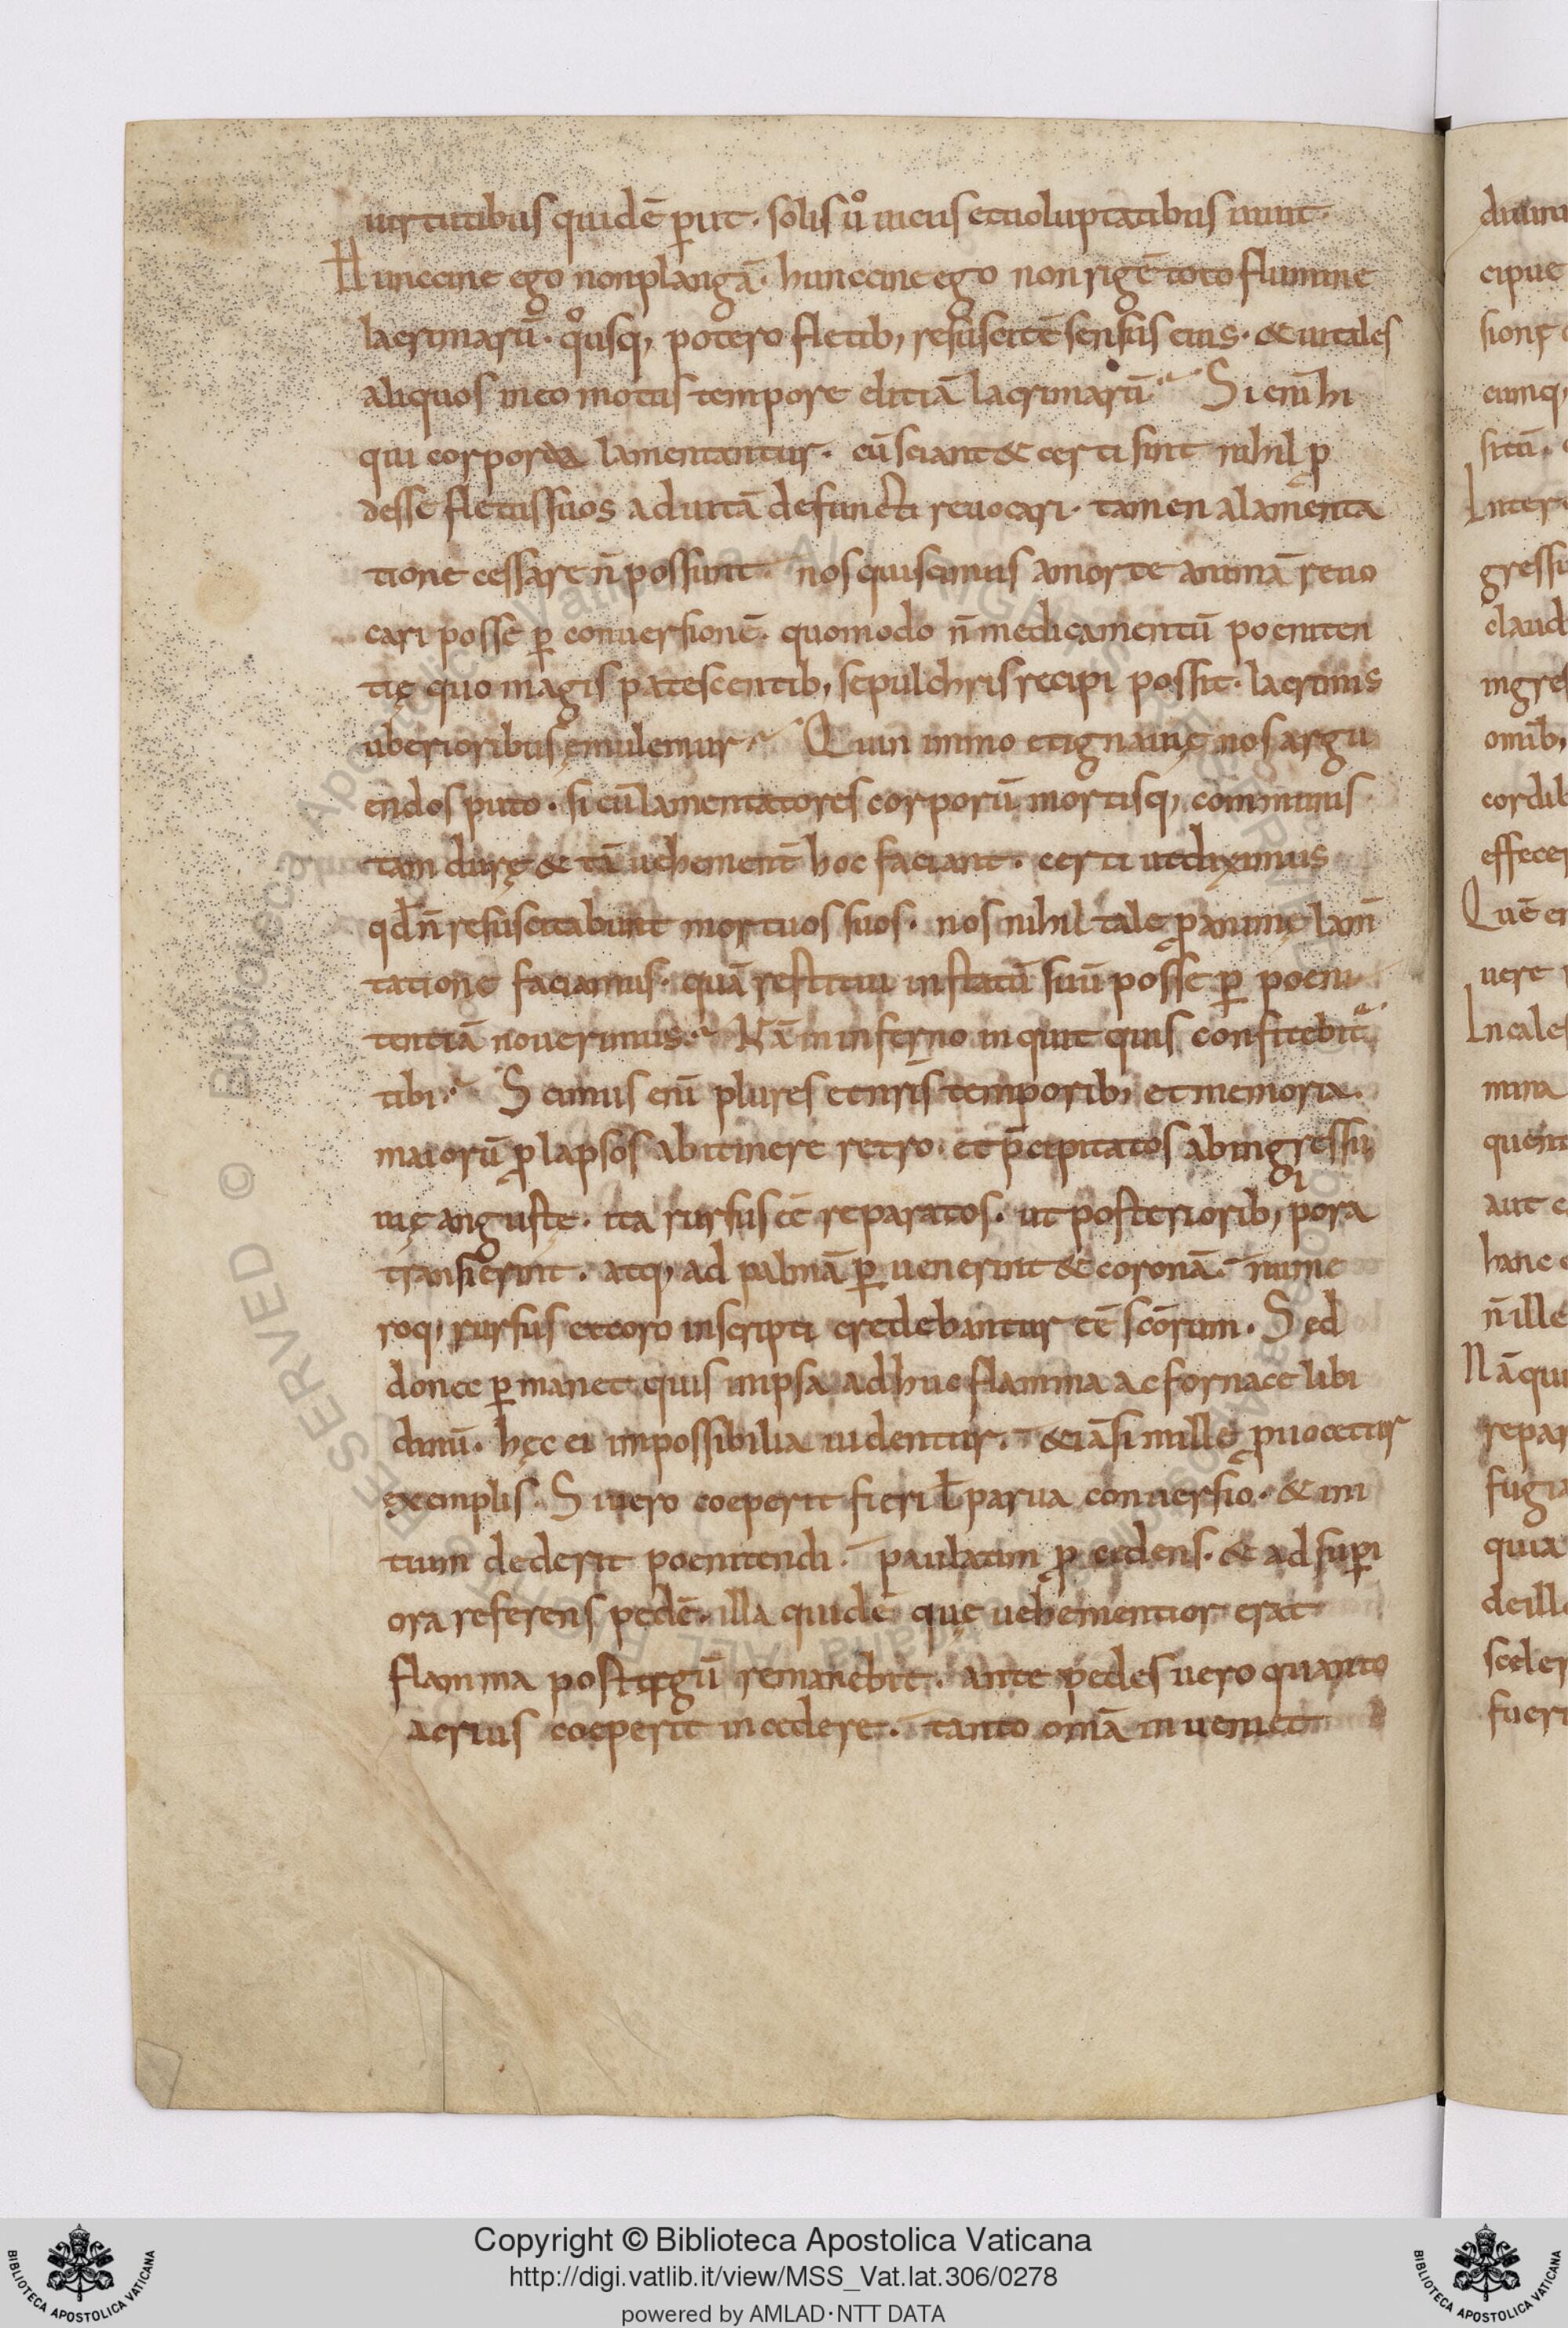 uirtutibus quidē ꝑiit · solis ů uicus etuoluptatibus uiuit ·
Hunccine ego nonplangā · hunccine ego non rigē toto flumine
lacrimarū · qͦusq; potero fletib; resuscitē sensus eius · &uitales
aliquos ineo motus tempore elitiā lacrimarū Si eni̅ hi
qui corpora lamentantur · cū sciant&certi sint nihil ꝓ
desse fletussuos aduitā defuncti reuocari · tamen alamenta
tione cessare n̄ possunt nos quiscimus amorte animā reuo
cari posse ꝑ conuersionē · quomodo n̄ medicamentū poeniten
tię quo magis patescentib; sepulchris recipi possit · lacrimis
uberioribus ęmulemur Quin immo etignauię nos argu
endos puto · si cū lamentatores corporū mortisq; cōmunis
tam durę & tā uehement̄ hoc faciant · certi utdiximus
qđ n̄ resuscitabunt mortuos suos · nos nihil tale ꝓ animę lam̄
tatione faciamus · quā restitui instatū suū posse ꝑ poeni
tentiā nouerimus · Nā in inferno inquit quis confitebit̄
tibi · Scimus eni̅ plures etnr̄is temporib; et memoria ·
maiorū ꝓlapsos abitinere retro · et p̄cipitatos abingressu
uię angustę · ita rursus ēē reparatos · ut posterioribͥ; pora
transierint · atq; ad palmā ꝑuenerint &coronā · nume
roq; rursus etcoro inscripti credebantur ēē sc̄orum · Sed
donec ꝑmanet quis inipsa adhuc flamma ac fornace libi
dinū · hęc ei impossibilia uidentur · &iāsi mille ꝓuocetur
exemplis · Siuero coeperit fieri ł parua conuersio · & ini
tium dederit poenitendi · paulatim ꝓcedens · & ad suꝑi
ora referens pedē · illa quidē quę uehementior erat
flamma posttergū remanebit · ante pedes uero quanto
acrius coeperit incedere · tanto om̄a inueniet
Copyright © Biblioteca Apostolica Vaticana
http://digi.vatlib.it/view/MSS_Vat.lat.306/0278
powered by AMLAD·NTT DATA